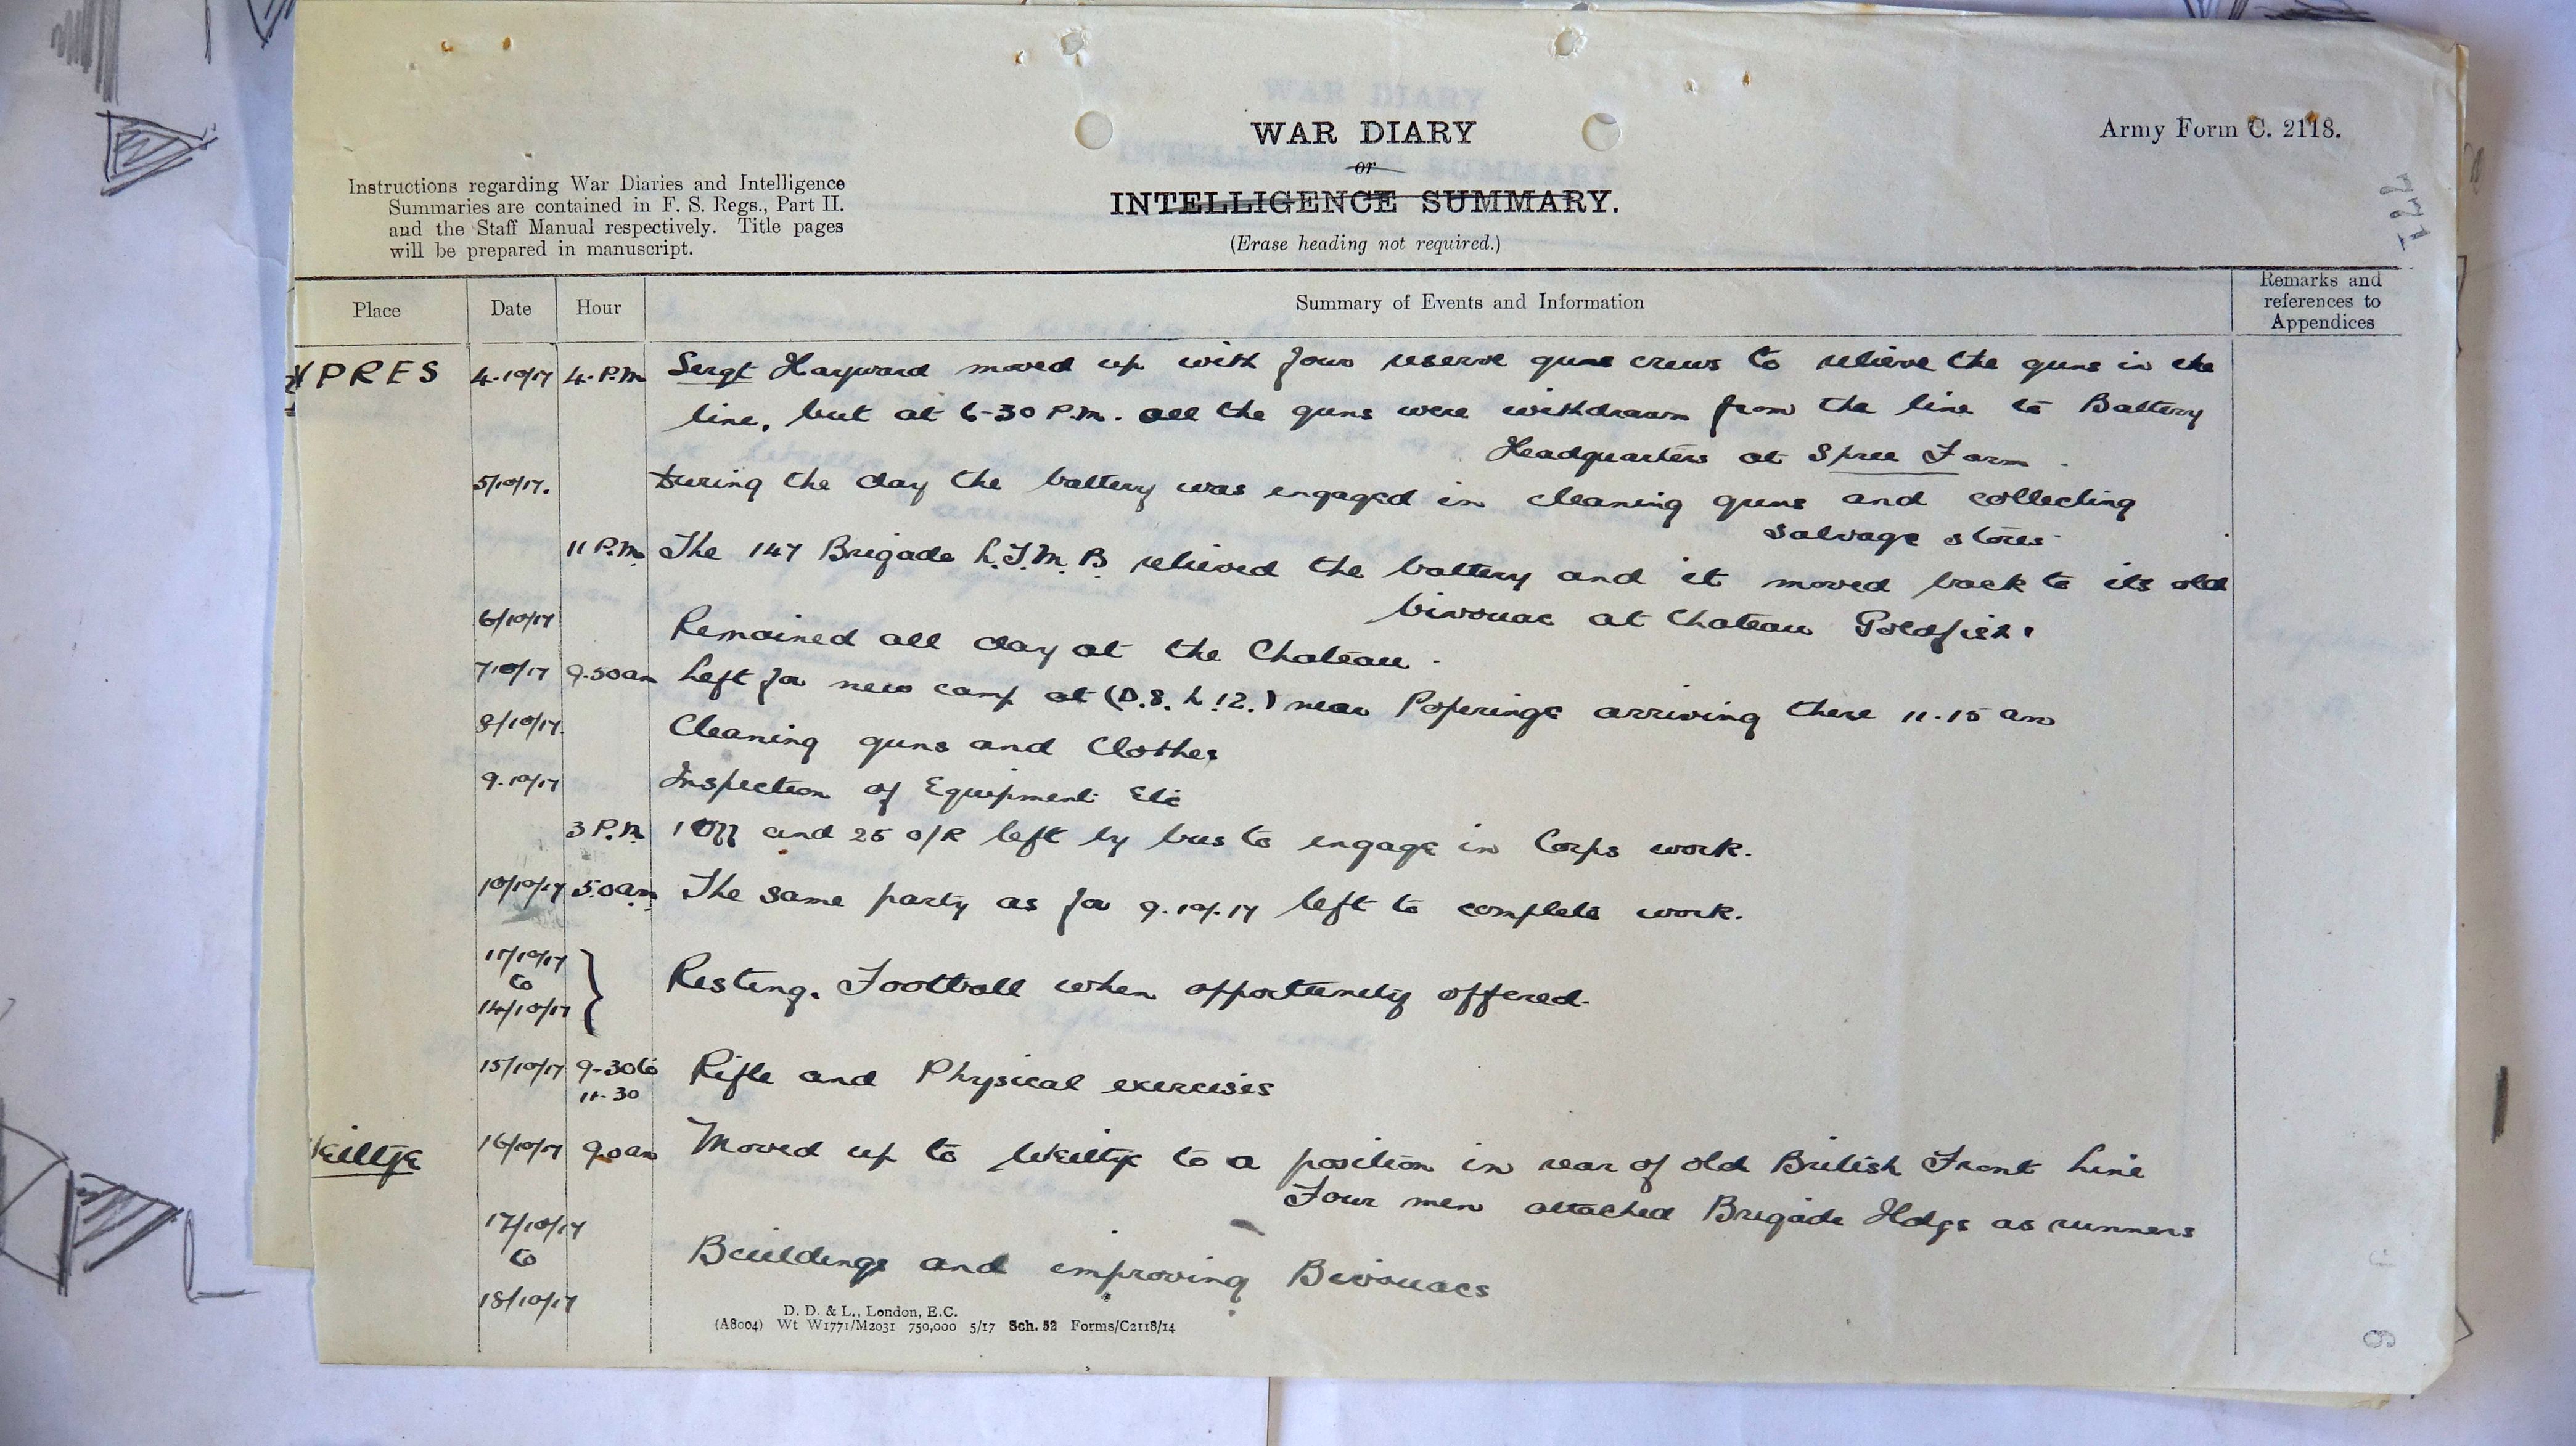 WAR DIARY
or
INTELLIGENCE SUMMARY.
(Erase heading not required.)
Army Form C. 2118.
Instructions regarding War Diaries and Intelligence
Summaries are contained in F. S. Regs., Part II.
and the Staff Manual respectively. Title pages
will be prepared in manuscript.
Place Date Hour Summary of Events and Information Remarks and references to Appendices
YPRES 4.10/17 4. P.M Sergt Hayward moved up with four reserve guns crews to relieve the guns in the
line, but at 6-30 P.M. all the guns were withdrawn from the line to Battery
Headquarters at Spree Farm.
5/10/17. During the day the battery was engaged in cleaning guns and collecting
salvage stores.
11 P.M. The 147 Brigade L.T.M.B. relieved the battery and it moved back to its old
bivouac at Chateau Goldfish.
6/10/17 Remained all day at the Chateau.
7/10/17 9.50am Left for new camp at (D.8.) near Poperinge arriving there 11.15 am
8/10/17. Cleaning guns and Clothes
9.10/17 Inspection of Equipment Etc
3 P.M. 1 Off and 25 O/R left by bus to engage in Corps work.
10/10/17 5.0am. The same party as for 9.10.17 left to complete work.
11/10/17
to
14/10/17 } Resting. Football when opportunity offered.
15/10/17 9-30 to Rifle and Physical exercises
11-30
Weiltje 16/10/17 9.0am Moved up to Weiltje to a position in rear of old British Front Line
Four men attached Brigade Hdqs as runners
17/10/17
to
18/10/17 Buildings and improving Bivouacs
D. D. & L., London, E.C.
(A8004) Wt W1771/M2031 750,000 5/17 Sch. 52 Forms/C2118/14